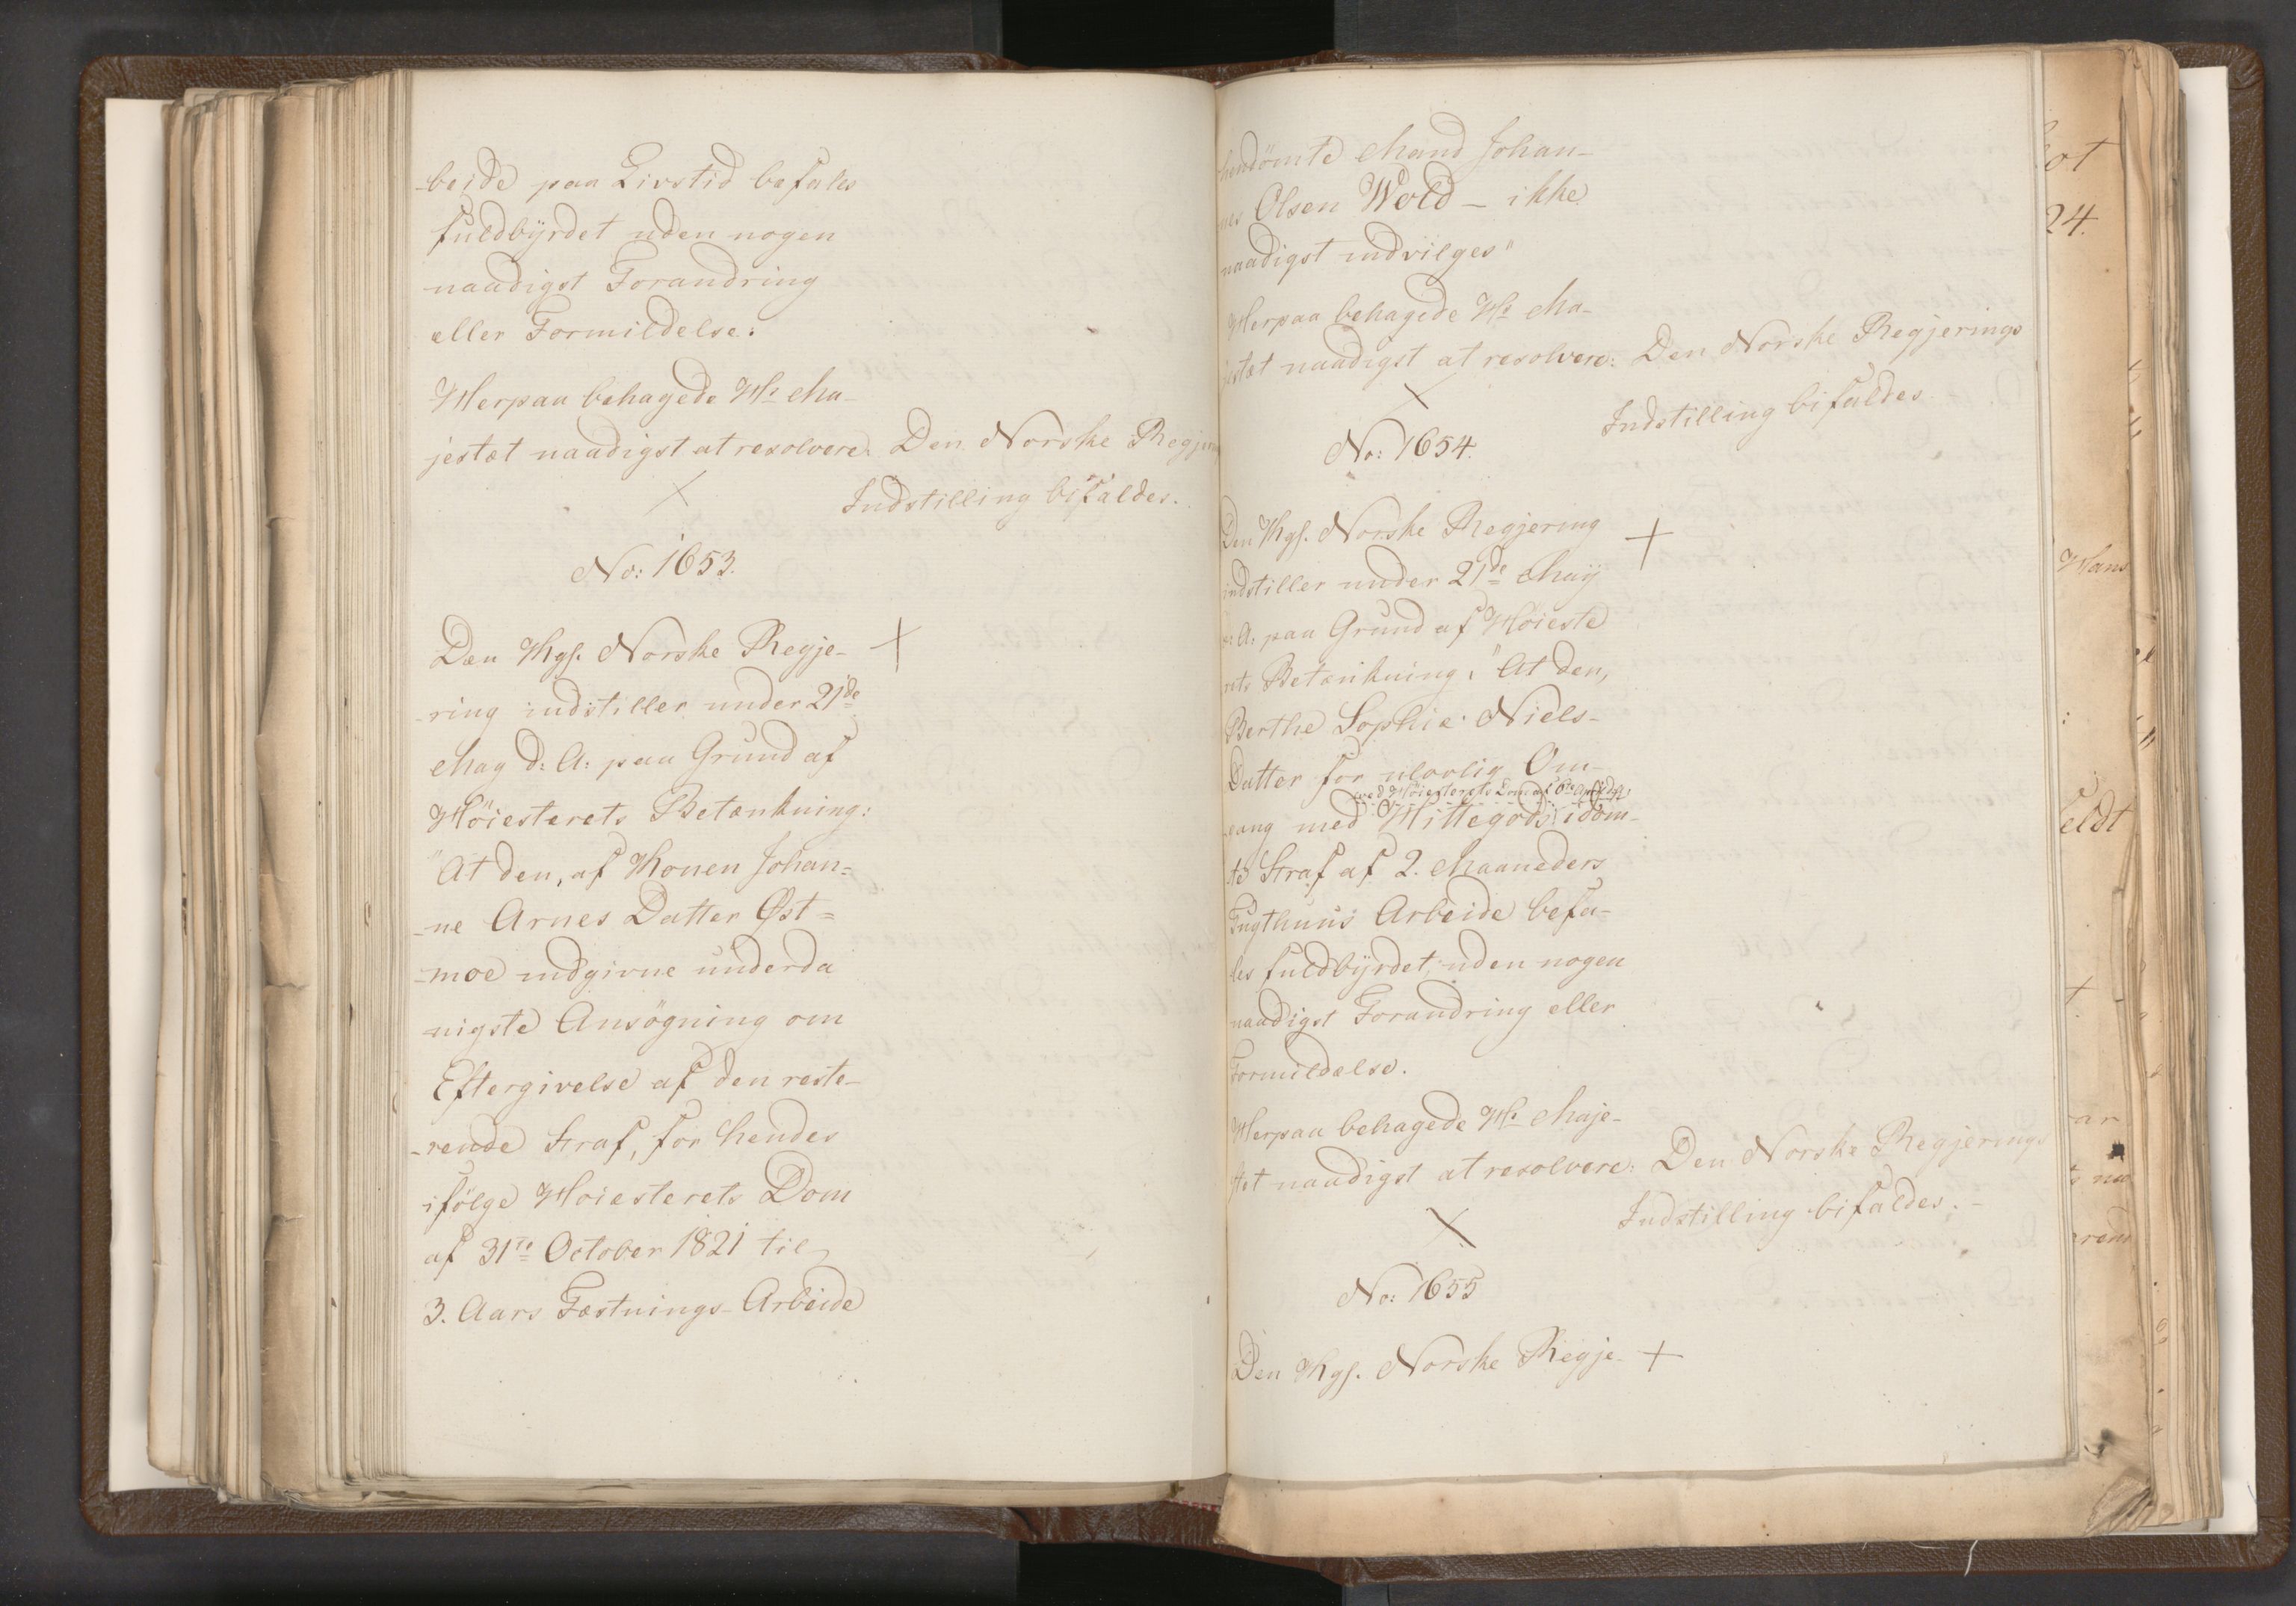 -beide paa Livstid befales
fuldbyrdet uden nogen
naadigst Forandring
eller Formildelse.
Herpaa behagede Hs Ma-
jestæt naadigst at resolvere: Den Norske Regje
Indstilling bifaldes.
No: 1653.
Den Kgs. Norske Regje-
-ring indstiller under 21de
May d: A: paa Grund af
Höiesterets Betænkning:
"At den, af Konen Johan=
-ne Arnes Datter Øst=
-moe indgivne underda
-nigste Ansögning om
Eftergivelse af den reste-
-rende Straf, for hendes
ifölge Höiesterets Dom
af 31te October 1821 til
3. Aars Fæstnings-Arbeide
hendömte Mand Johan-
nes Olsen Wold - ikke
naadigst indvilges"
Herpaa behagede Hs Ma-
jestæt naadigst at resolvere: Den Norske Regjerings
Indstilling bifaldes.
No: 1654.
Den Kgs. Norske Regjering
indstiller under 21de May
d: A: paa Grund af Höieste
rets Betænkning: "At den,
Berthe Sophie Niels-
Datter for ulovlig Om-
ved Höiesterets Dom af 6te
gang med Hittegods idöm-
te Straf af 2. Maaneders
Tugthuus Arbeide befa-
les fuldbyrdet, uden nogen
naadigst Forandring eller
Formildelse.
Herpaa behagede Hs Maje-
stæt naadigst at resolvere: Den Norske Regjerings
Indstilling bifaldes.
No: 1655
Den Kgs. Norske Regje-
24.
Hans
eldt